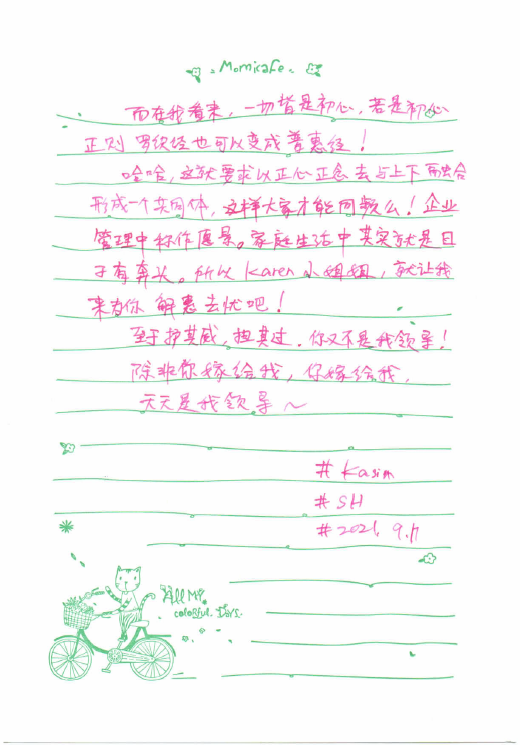 Momicafe
而在我看来，一切皆是初心，若是初心
正则 罗织经也可以变成普惠经！
哈哈，这就要求以正心正念去与上下融合
形成一个共同体，这样大家才能同频么！企业
管理中称作愿景。家庭生活中其实就是日
子有奔头。所以 Karen 小姐姐，就让我
来为你 解惑去忧吧！
至于护其威，担其过。你又不是我领导！
除非你嫁给我，你嫁给我，
天天是我领导～
# Kasim
# SH
# 2021. 9.
All My
colorful Days.